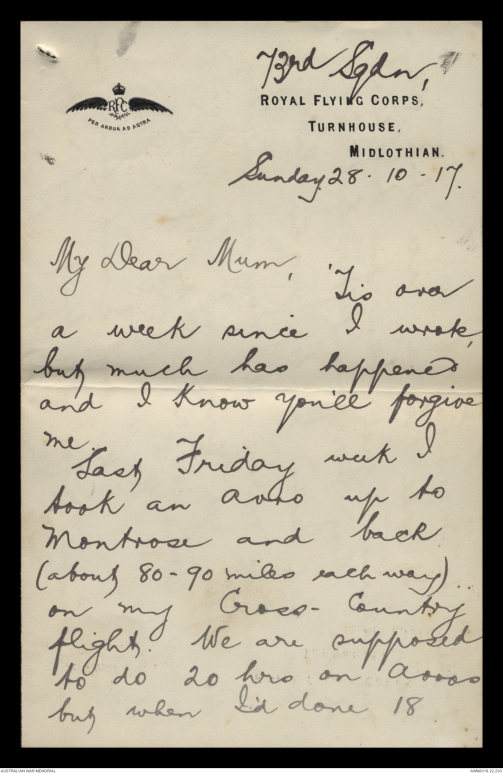 73rd Sqdn,
RFC
PER ARDUA AD ASTRA
ROYAL FLYING CORPS,
TURNHOUSE,
MIDLOTHIAN.
Sunday 28 - 10 - 17.
My Dear Mum,
'Tis over
a week since I wrote,
but much has happened
and I know you'll forgive
me.
Last Friday week I
took an Avro up to
Montrose and back
(about 80-90 miles each way)
on my Cross-Country
flight. We are supposed
to do 20 hrs on Avros
but when I'd done 18
AUSTRALIAN WAR MEMORIAL